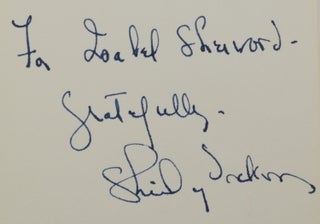 For Isabel Sherword-
Gratefully-
Shirley Jackson